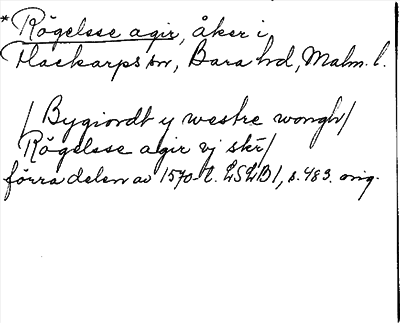 *Rögelsse agir, åker i
Flackarps sn, Bara hd, Malm. l.
/ Bygiordt y westre wongh/
Rögelsse agir vj skr/
förra delen av 1570-t. LSLB 1, s. 483. orig.